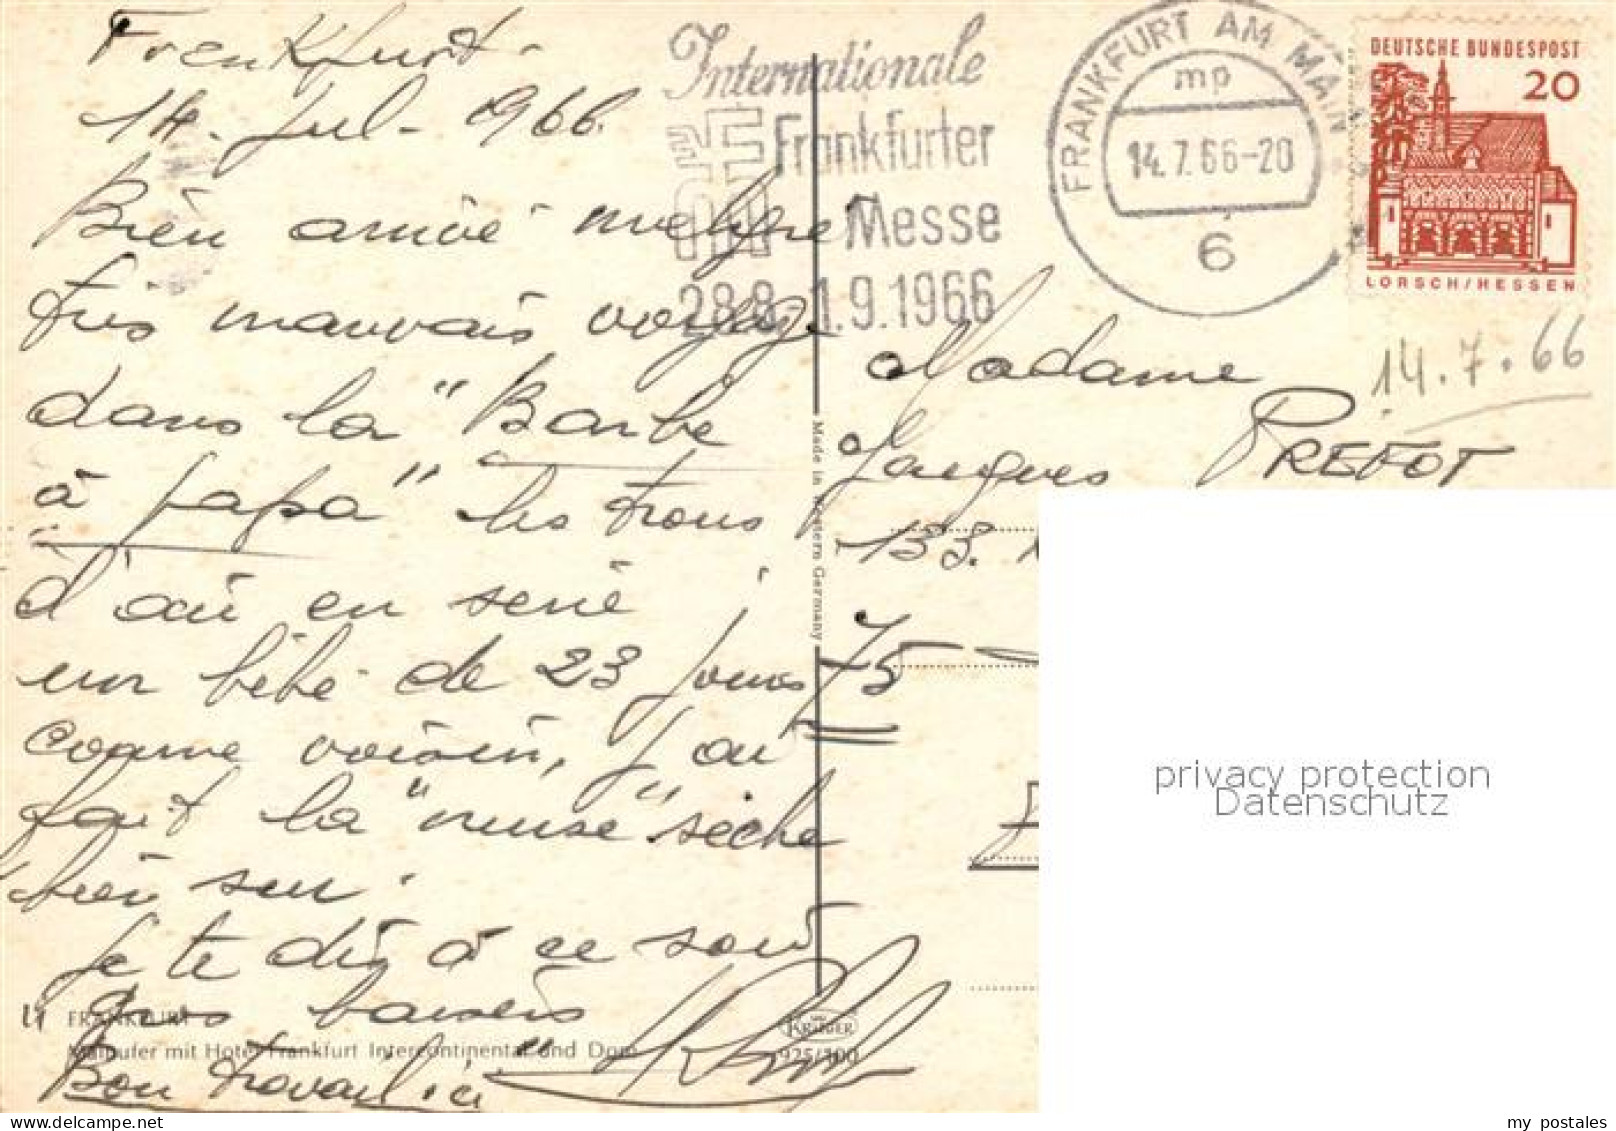 Frankfurt -
14. Jul - 1966
Bien arrivé malgré
très mauvais voyage
dans la "Barbe
à papa" les trous
d'air en série ;
un bébé de 23 jours
comme voisin, j'ai
fait la "nurse" sèche
bien sur.
Je te dis à ce soir
gros baisers
Bon travail
FRANKFURT
Mainufer mit Hotel Frankfurt Intercontinental und Dom
KRÜGER
925/300
Made in Western Germany
Internationale
Frankfurter
Messe
28.8. 1.9.1966
FRANKFURT AM MAIN
mp
14.7.66-20
6
DEUTSCHE BUNDESPOST
20
LORSCH/HESSEN
14.7.66
Madame
Jacques PREFOT
133.
75
privacy protection
Datenschutz
my postales